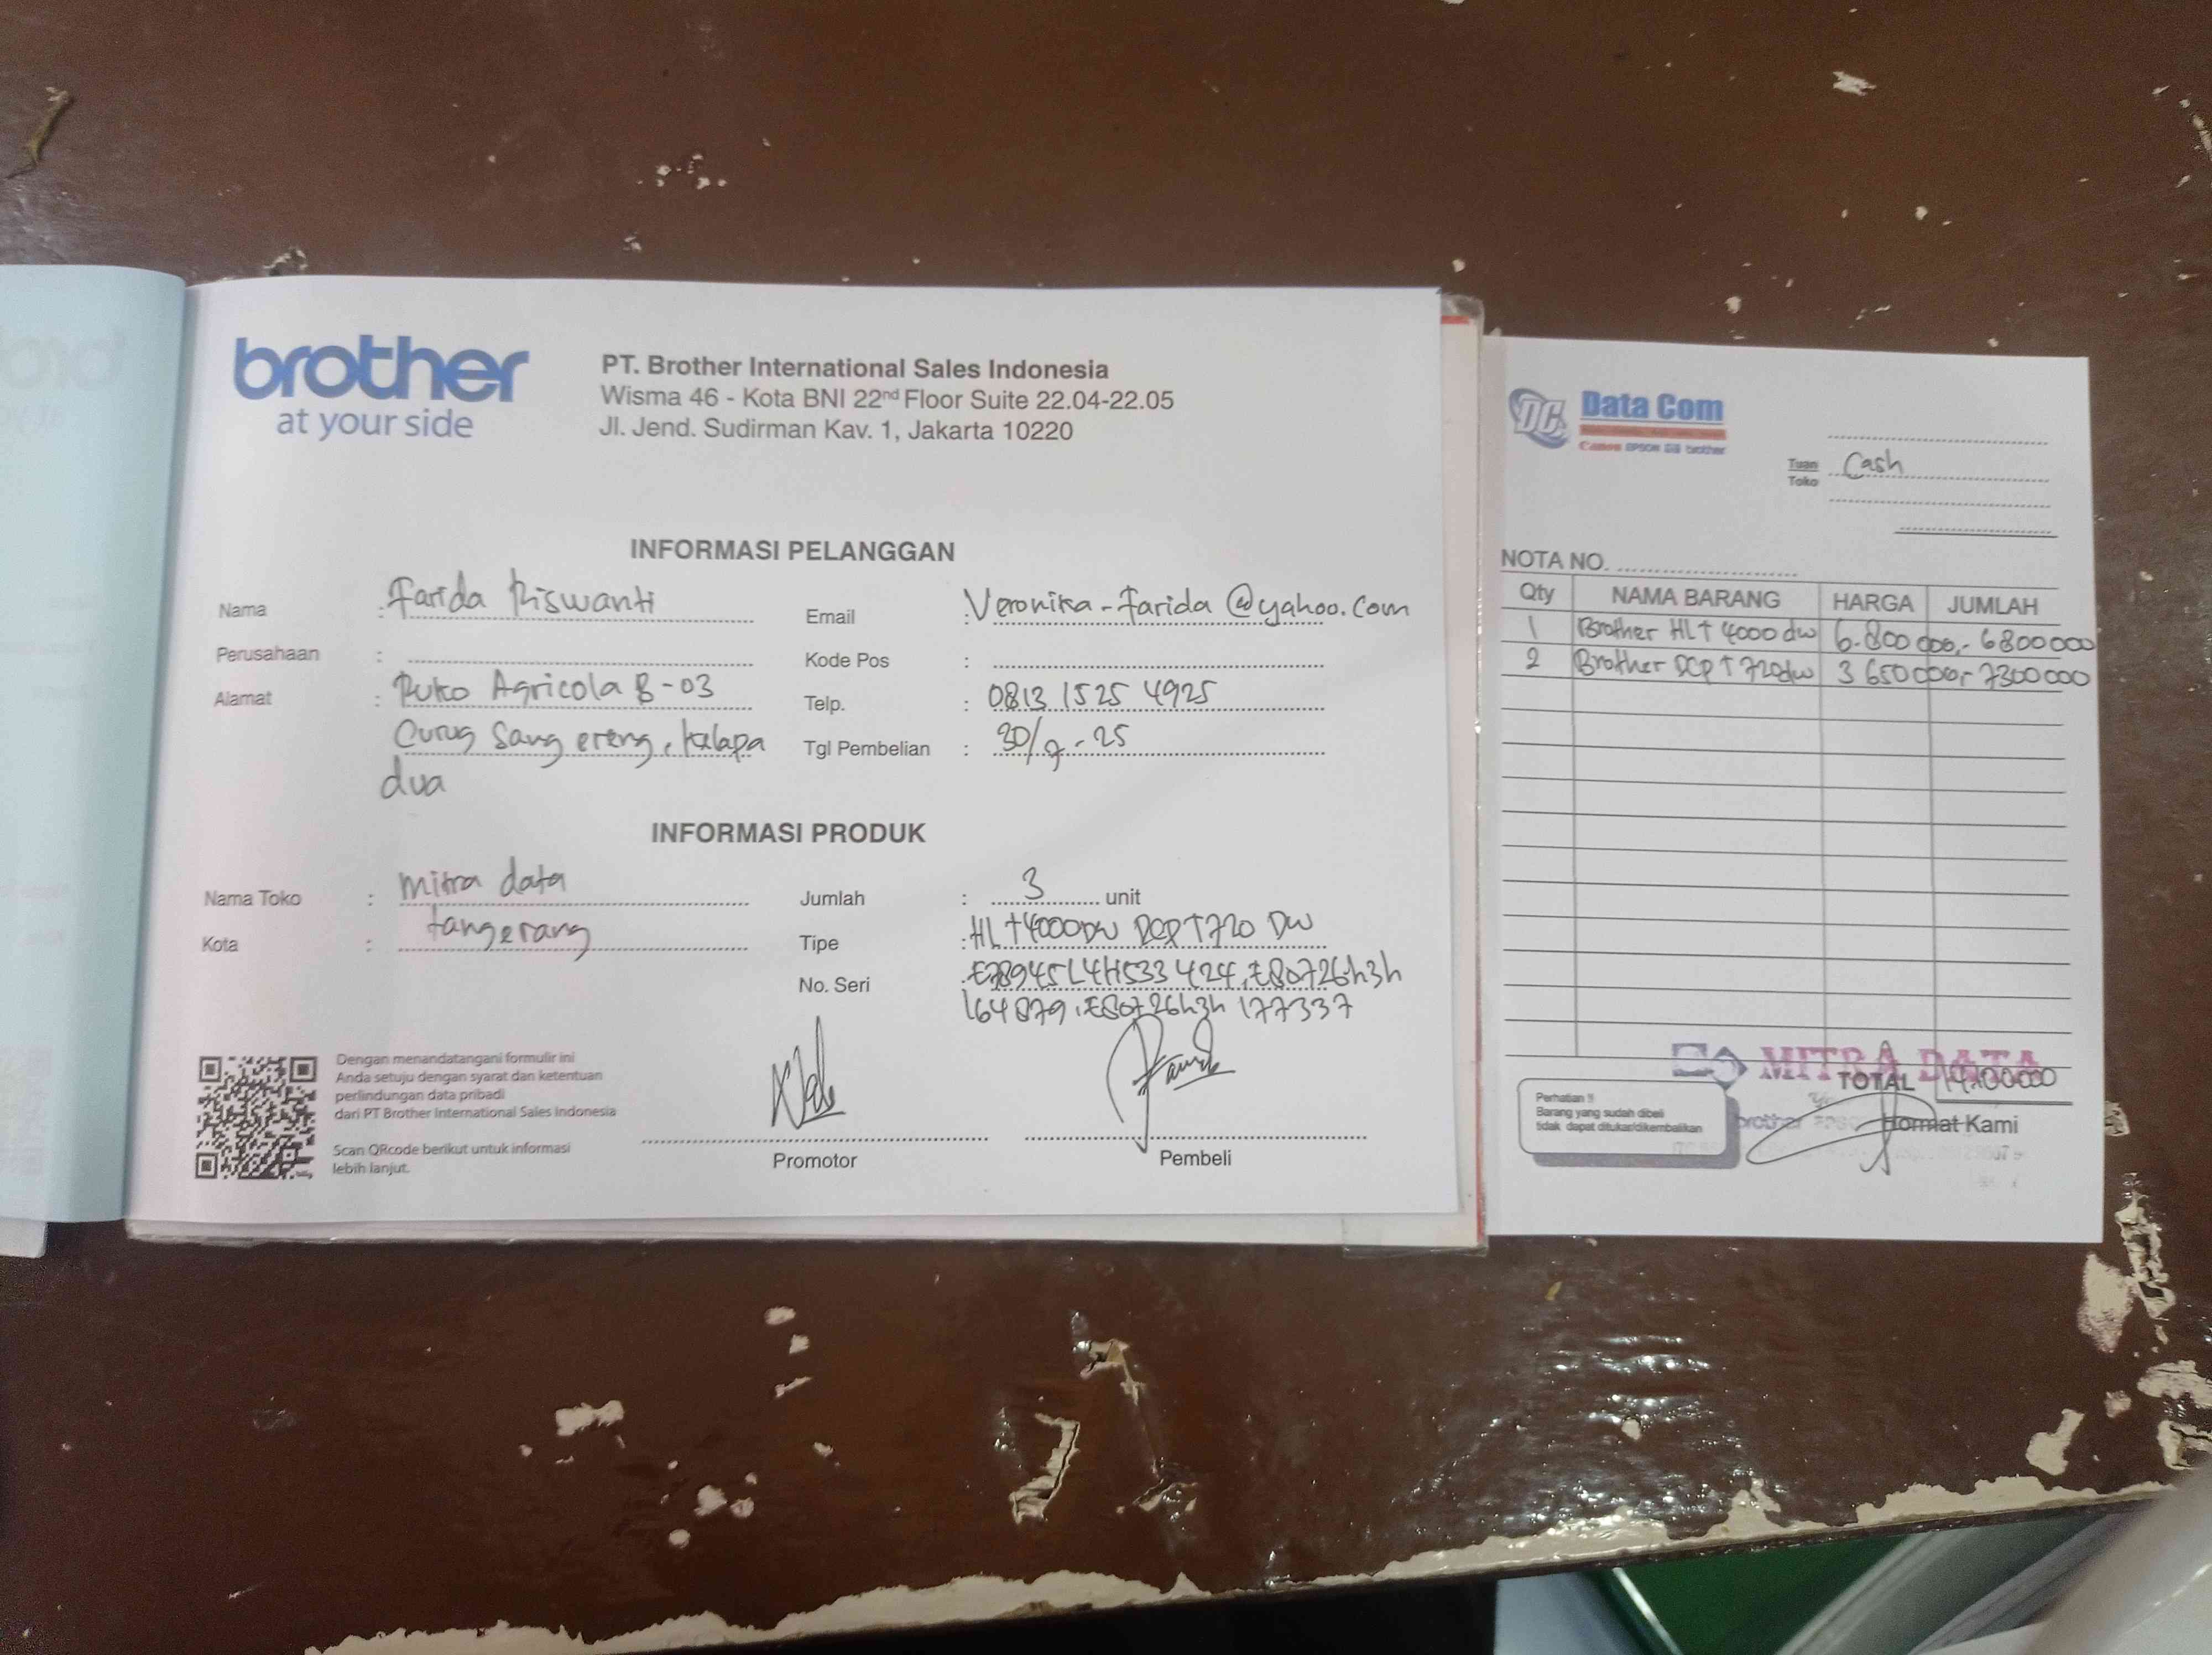 brother
at your side
PT. Brother International Sales Indonesia
Wisma 46 - Kota BNI 22nd Floor Suite 22.04-22.05
Jl. Jend. Sudirman Kav. 1, Jakarta 10220
INFORMASI PELANGGAN
Nama : Farida Riswanti
Perusahaan :
Alamat : Ruko Agricola B-03
Curug Sang ereng, kalapa
dua
Email : Veronika-farida@yahoo.com
Kode Pos :
Telp. : 0813 1525 4925
Tgl Pembelian : 30/9-25
INFORMASI PRODUK
Nama Toko : mitra data
Kota : tangerang
Jumlah : 3 unit
Tipe : HL T4000DW DCP T720 DW
No. Seri : E78945L4H533424, E80726h3h
164879, E80726h3h 177337
Dengan menandatangani formulir ini
Anda setuju dengan syarat dan ketentuan
perlindungan data pribadi
dari PT Brother International Sales Indonesia
Scan QRcode berikut untuk informasi
lebih lanjut.
Promotor
Pembeli
DC Data Com
Canon EPSON brother
Tuan Cash
Toko
NOTA NO.
Qty NAMA BARANG HARGA JUMLAH
1 Brother HLT 4000 dw 6.800 000,- 6800000
2 Brother DCP T 720dw 3 650 000,- 7300000
MITRA DATA
TOTAL 14100000
Perhatian !!
Barang yang sudah dibeli
tidak dapat ditukar/dikembalikan
brother
Hormat Kami